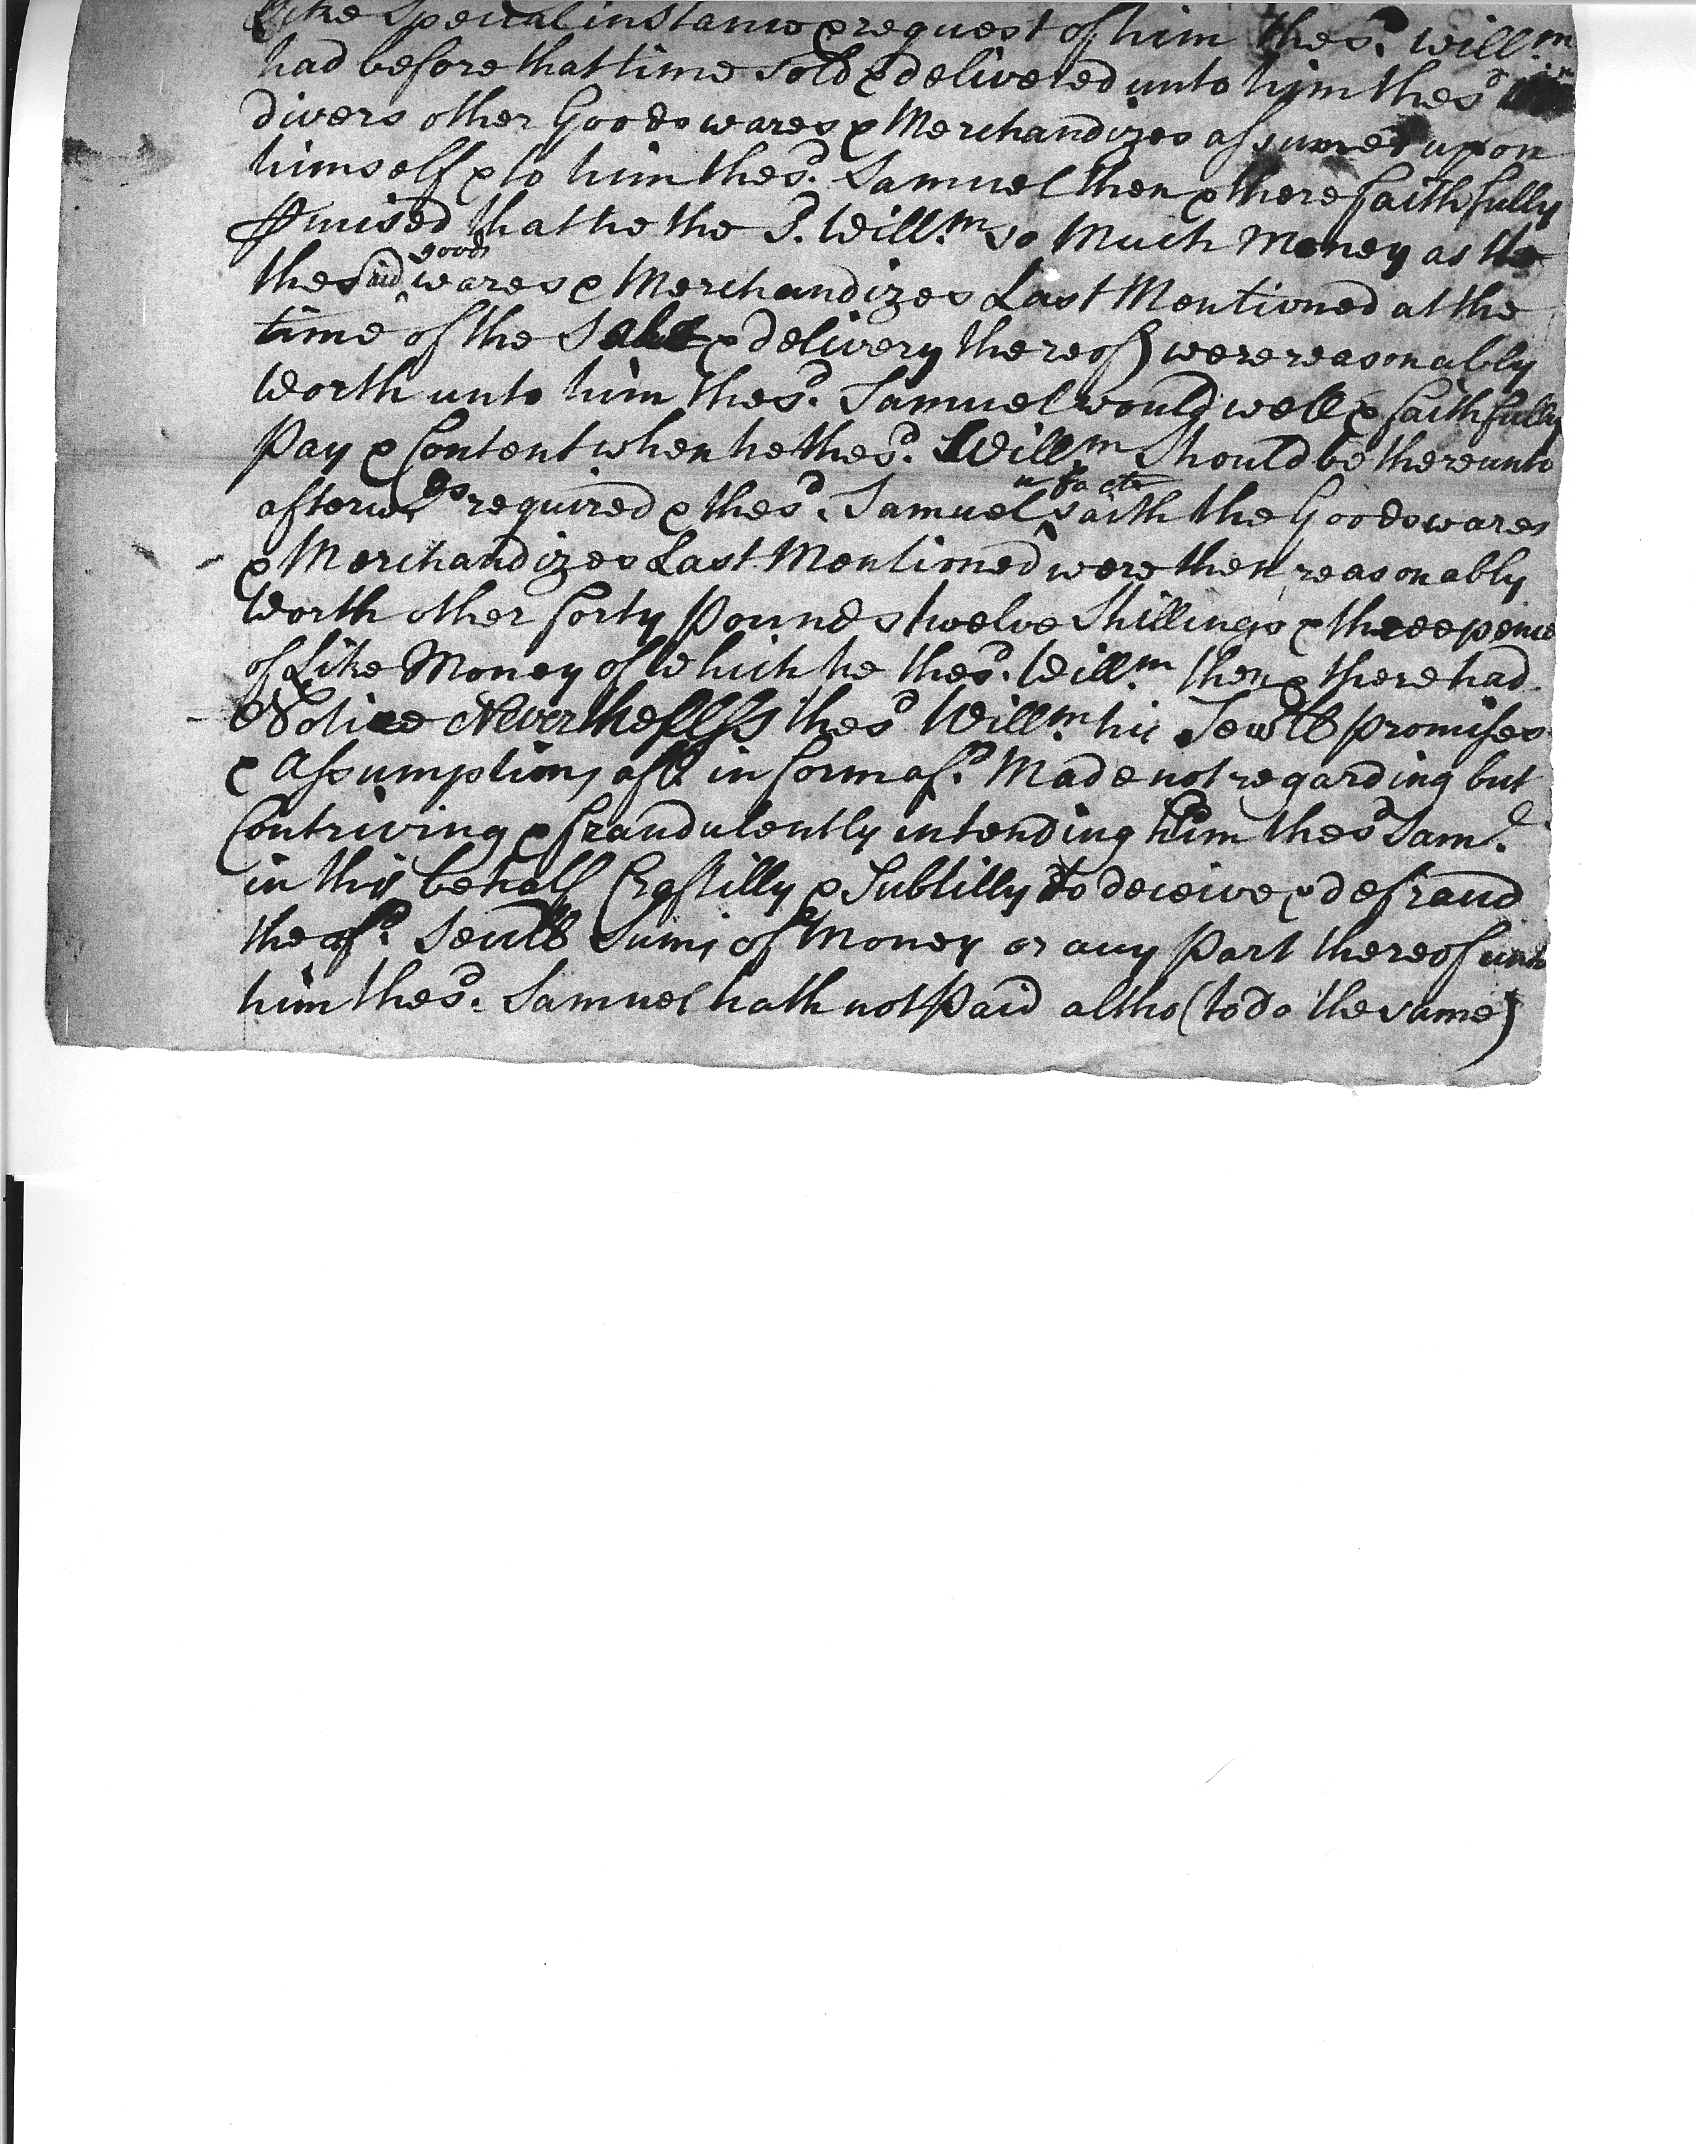 like Special instance & request of him the sd. Willm.
had before that time sold & delivered unto him the sd
divers other Goods wares & Merchandizes assumed upon
himself & to him the sd. Samuel then & there faithfully
pmised that he the Sd. Willm. so Much Money as the
the said goods wares & Merchandizes Last Mentioned at the
time of the Sale & delivery thereof) were reasonably
Worth unto him the sd. Samuel would well & faithfully
Pay & Content when he the sd. Willm Should be thereunto
afterwds required & the sd. Samuel in facte saith the Goods wares
& Merchandizes Last Mentioned were then reasonably
Worth other forty Pounds twelve Shillings & threepence
of Like Money of Which he the sd. Willm. then & there had
Notice Nevertheless the sd Willm. his Sevll promises
& Assumptions afd. in form afd. Made not regarding but
Contriving & fraudulently intending him the sd Saml.
in this behalf Craftilly & Subtilly to deceive & defraud
the afd. Sevll Sums of Money or any Part thereof unto
him the sd. Samuel hath not Paid altho (to do the same)